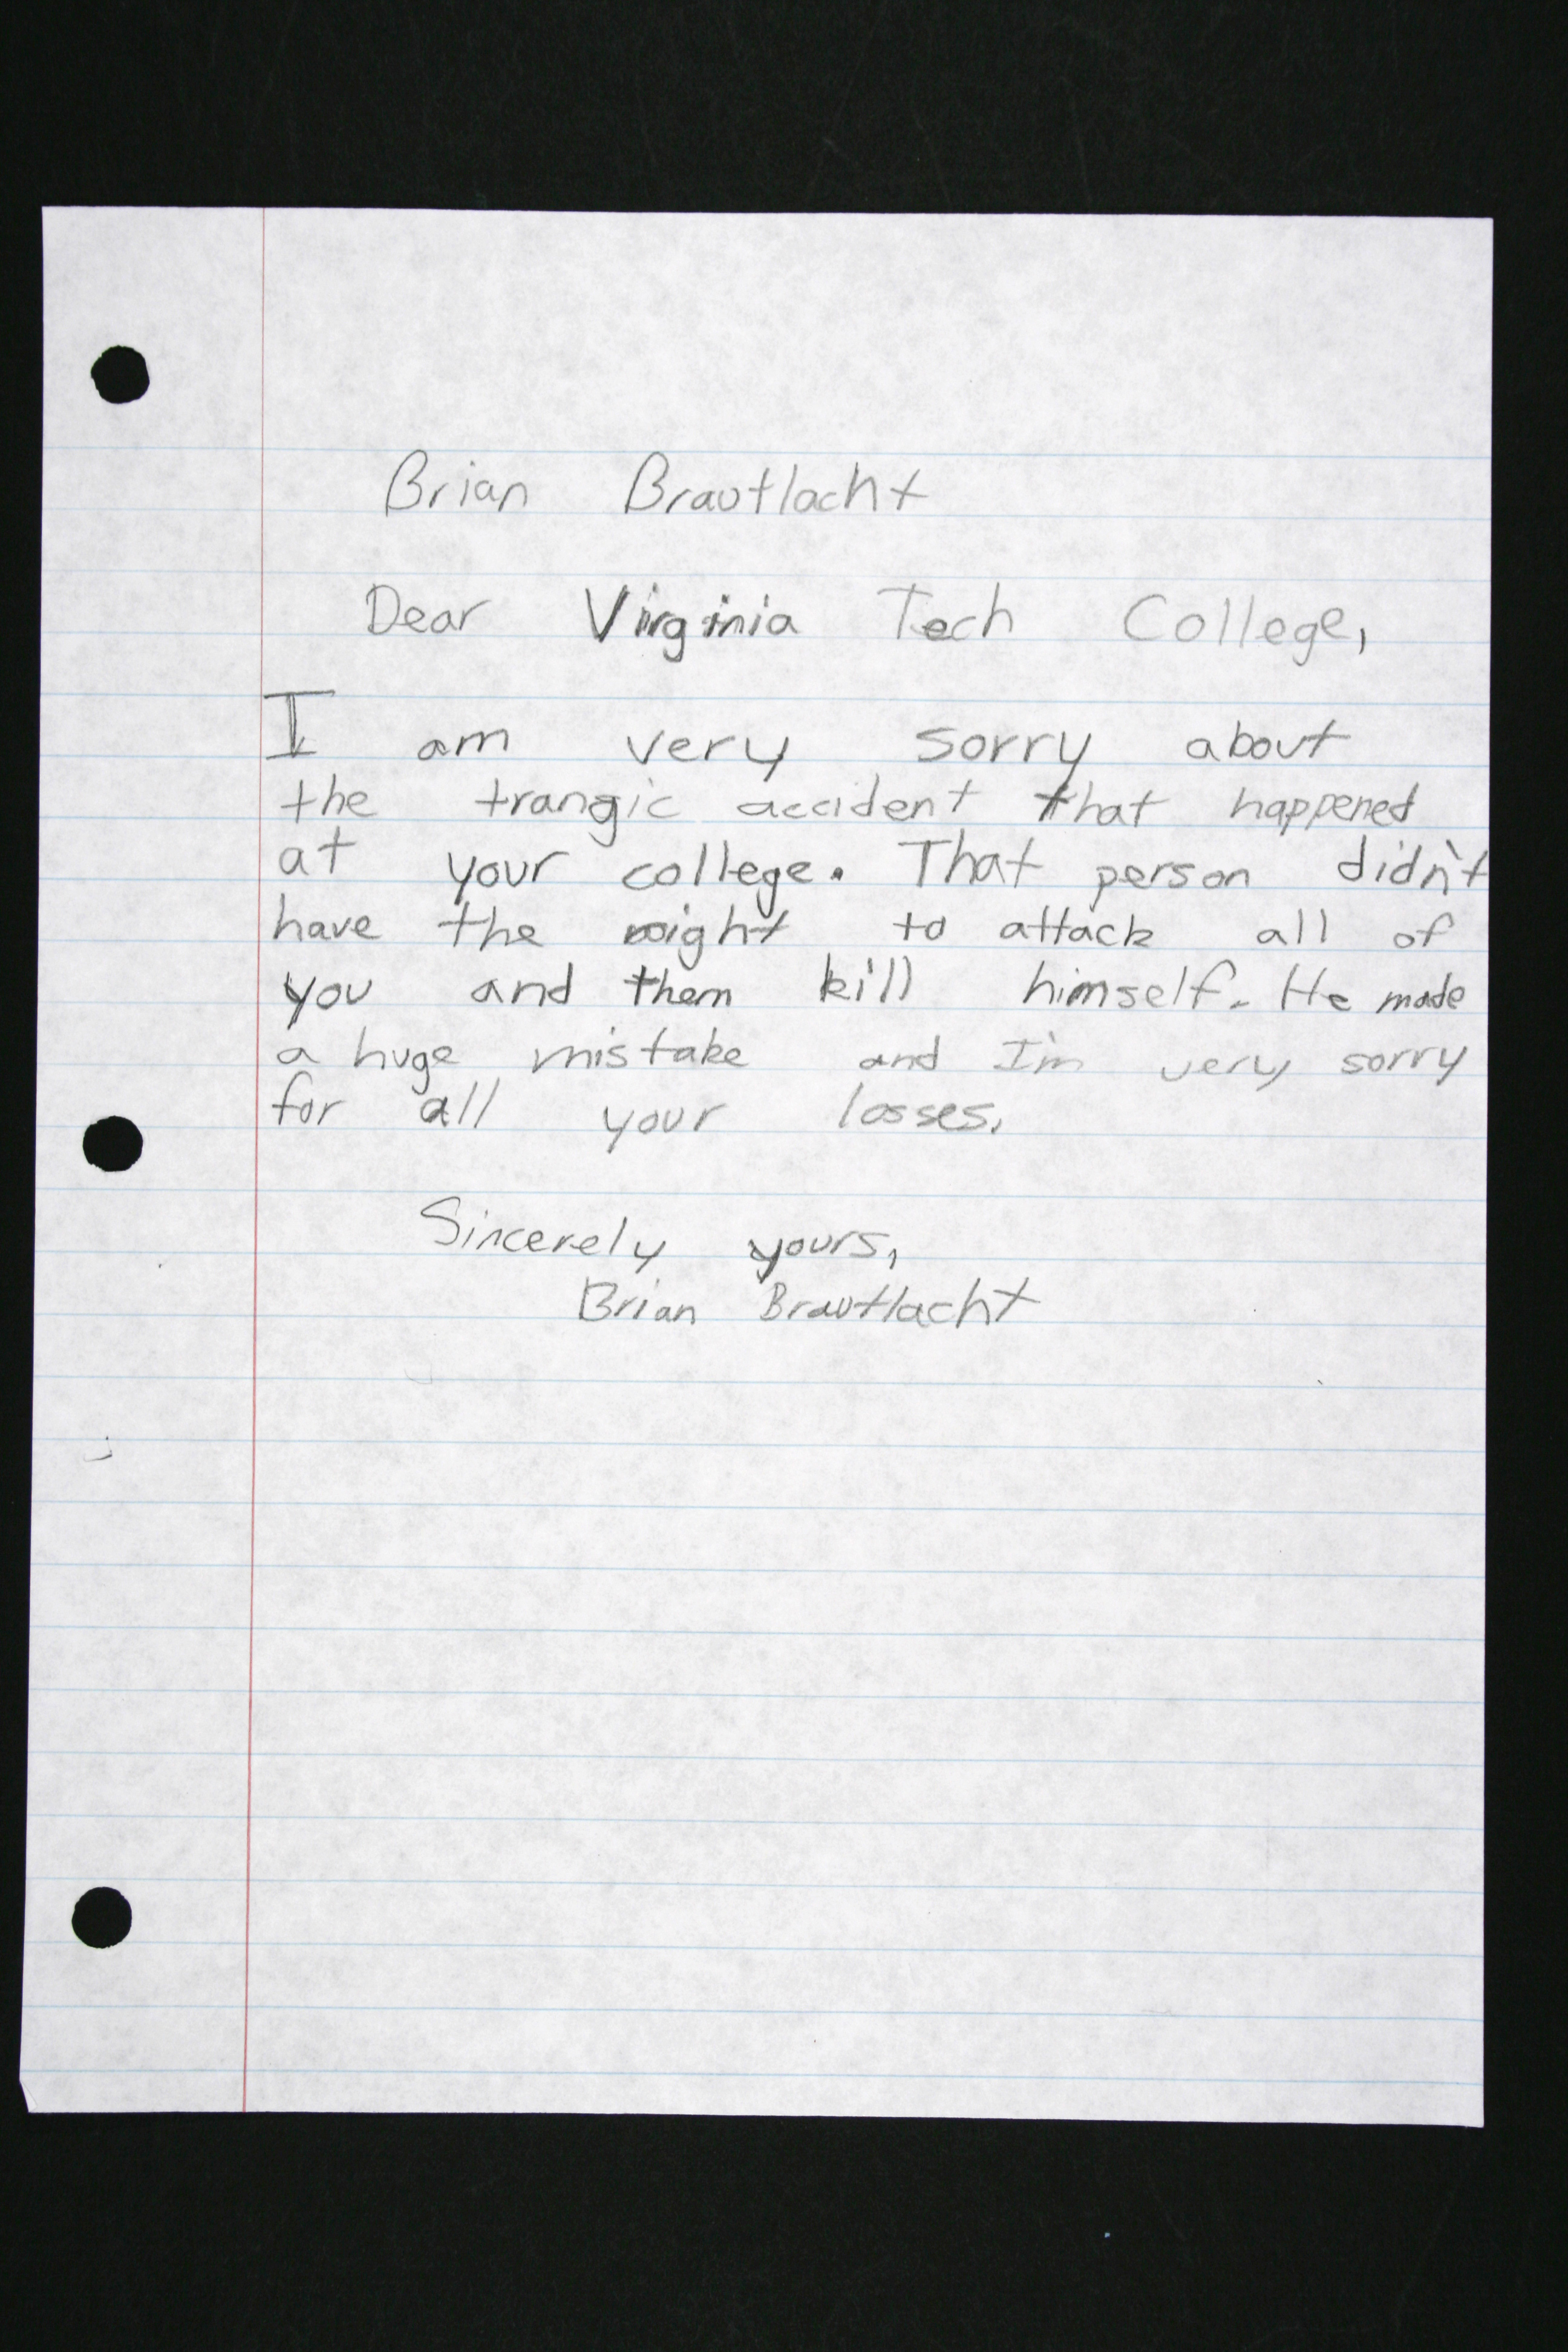 Brian Brautlacht
Dear Virginia Tech College,
I am very sorry about
the trangic accident that happened
at your college. That person didn't
have the right to attack all of
you and them kill himself. He made
a huge mistake and I'm very sorry
for all your losses,
Sincerely yours,
Brian Brautlacht